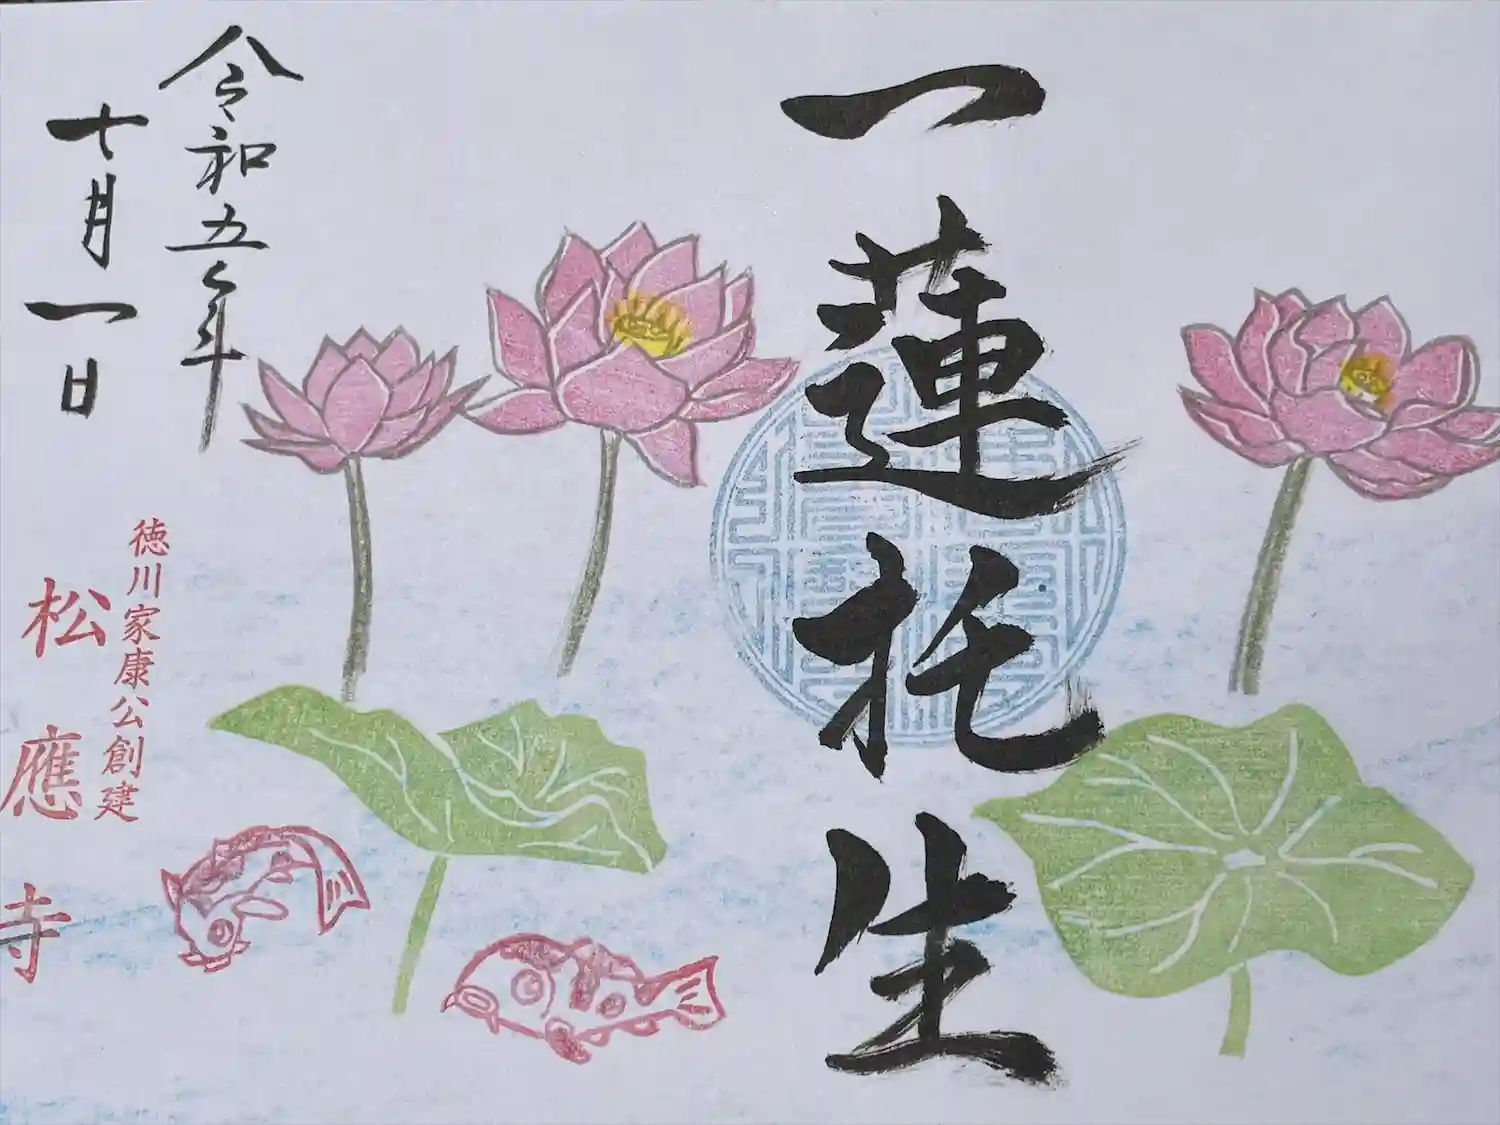 一蓮托生
令和五年
十月一日
徳川家康公創建
松應寺